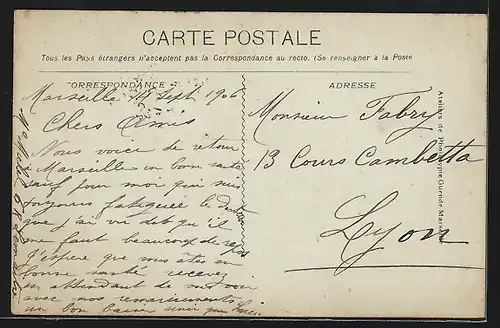 CARTE POSTALE
Tous les Pays étrangers n'acceptent pas la Correspondance au recto. (Se renseigner à la Poste
CORRESPONDANCE
ADRESSE
Marseille 14 Sept 1906
Chers Amis
Nous voici de retour
a Marseille en bonne santé
sauf pour moi qui suis
toujours fatiguée le
que j'ai vu dit qu'il
me faut beaucoup de repos
J'espère que vous êtes en
bonne santé recevez
en attendant de vous voir
avec nos remerciements
un bon baiser
Monsieur Fabry
13 Cours Gambetta
Lyon
Ateliers de Phototypie Guende Marseille